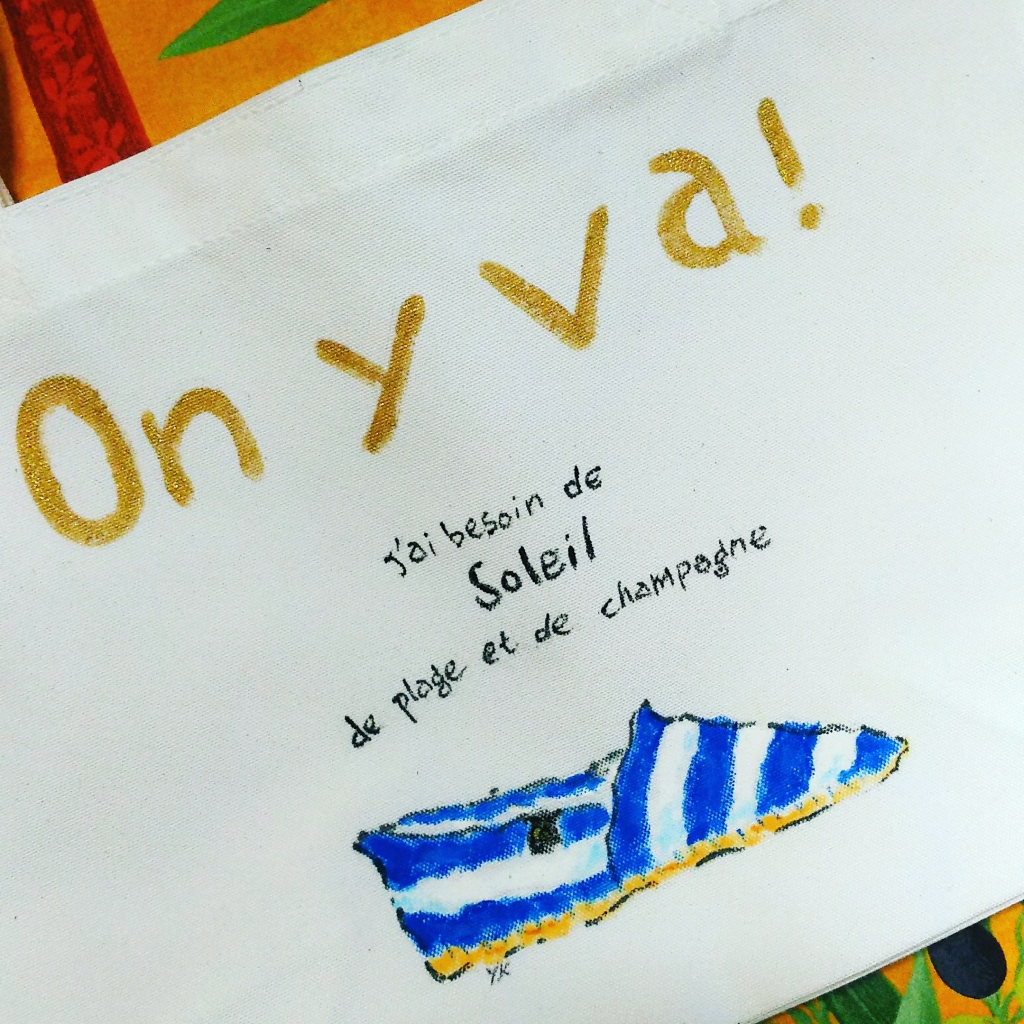 On y va!
j'ai besoin de
Soleil
de plage et de champagne
YK